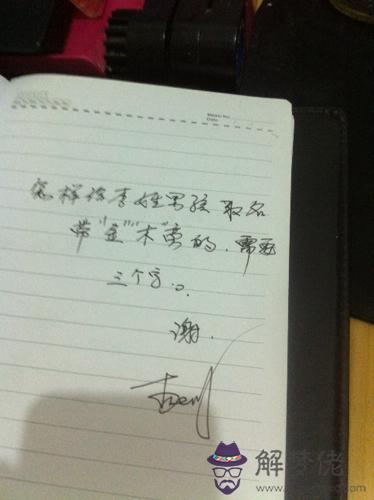 Memo No.
Date
怎样给李姓男孩取名
带"金""木"旁的.需要
三个字。
谢.
解梦佬
www.jiemenglao.com